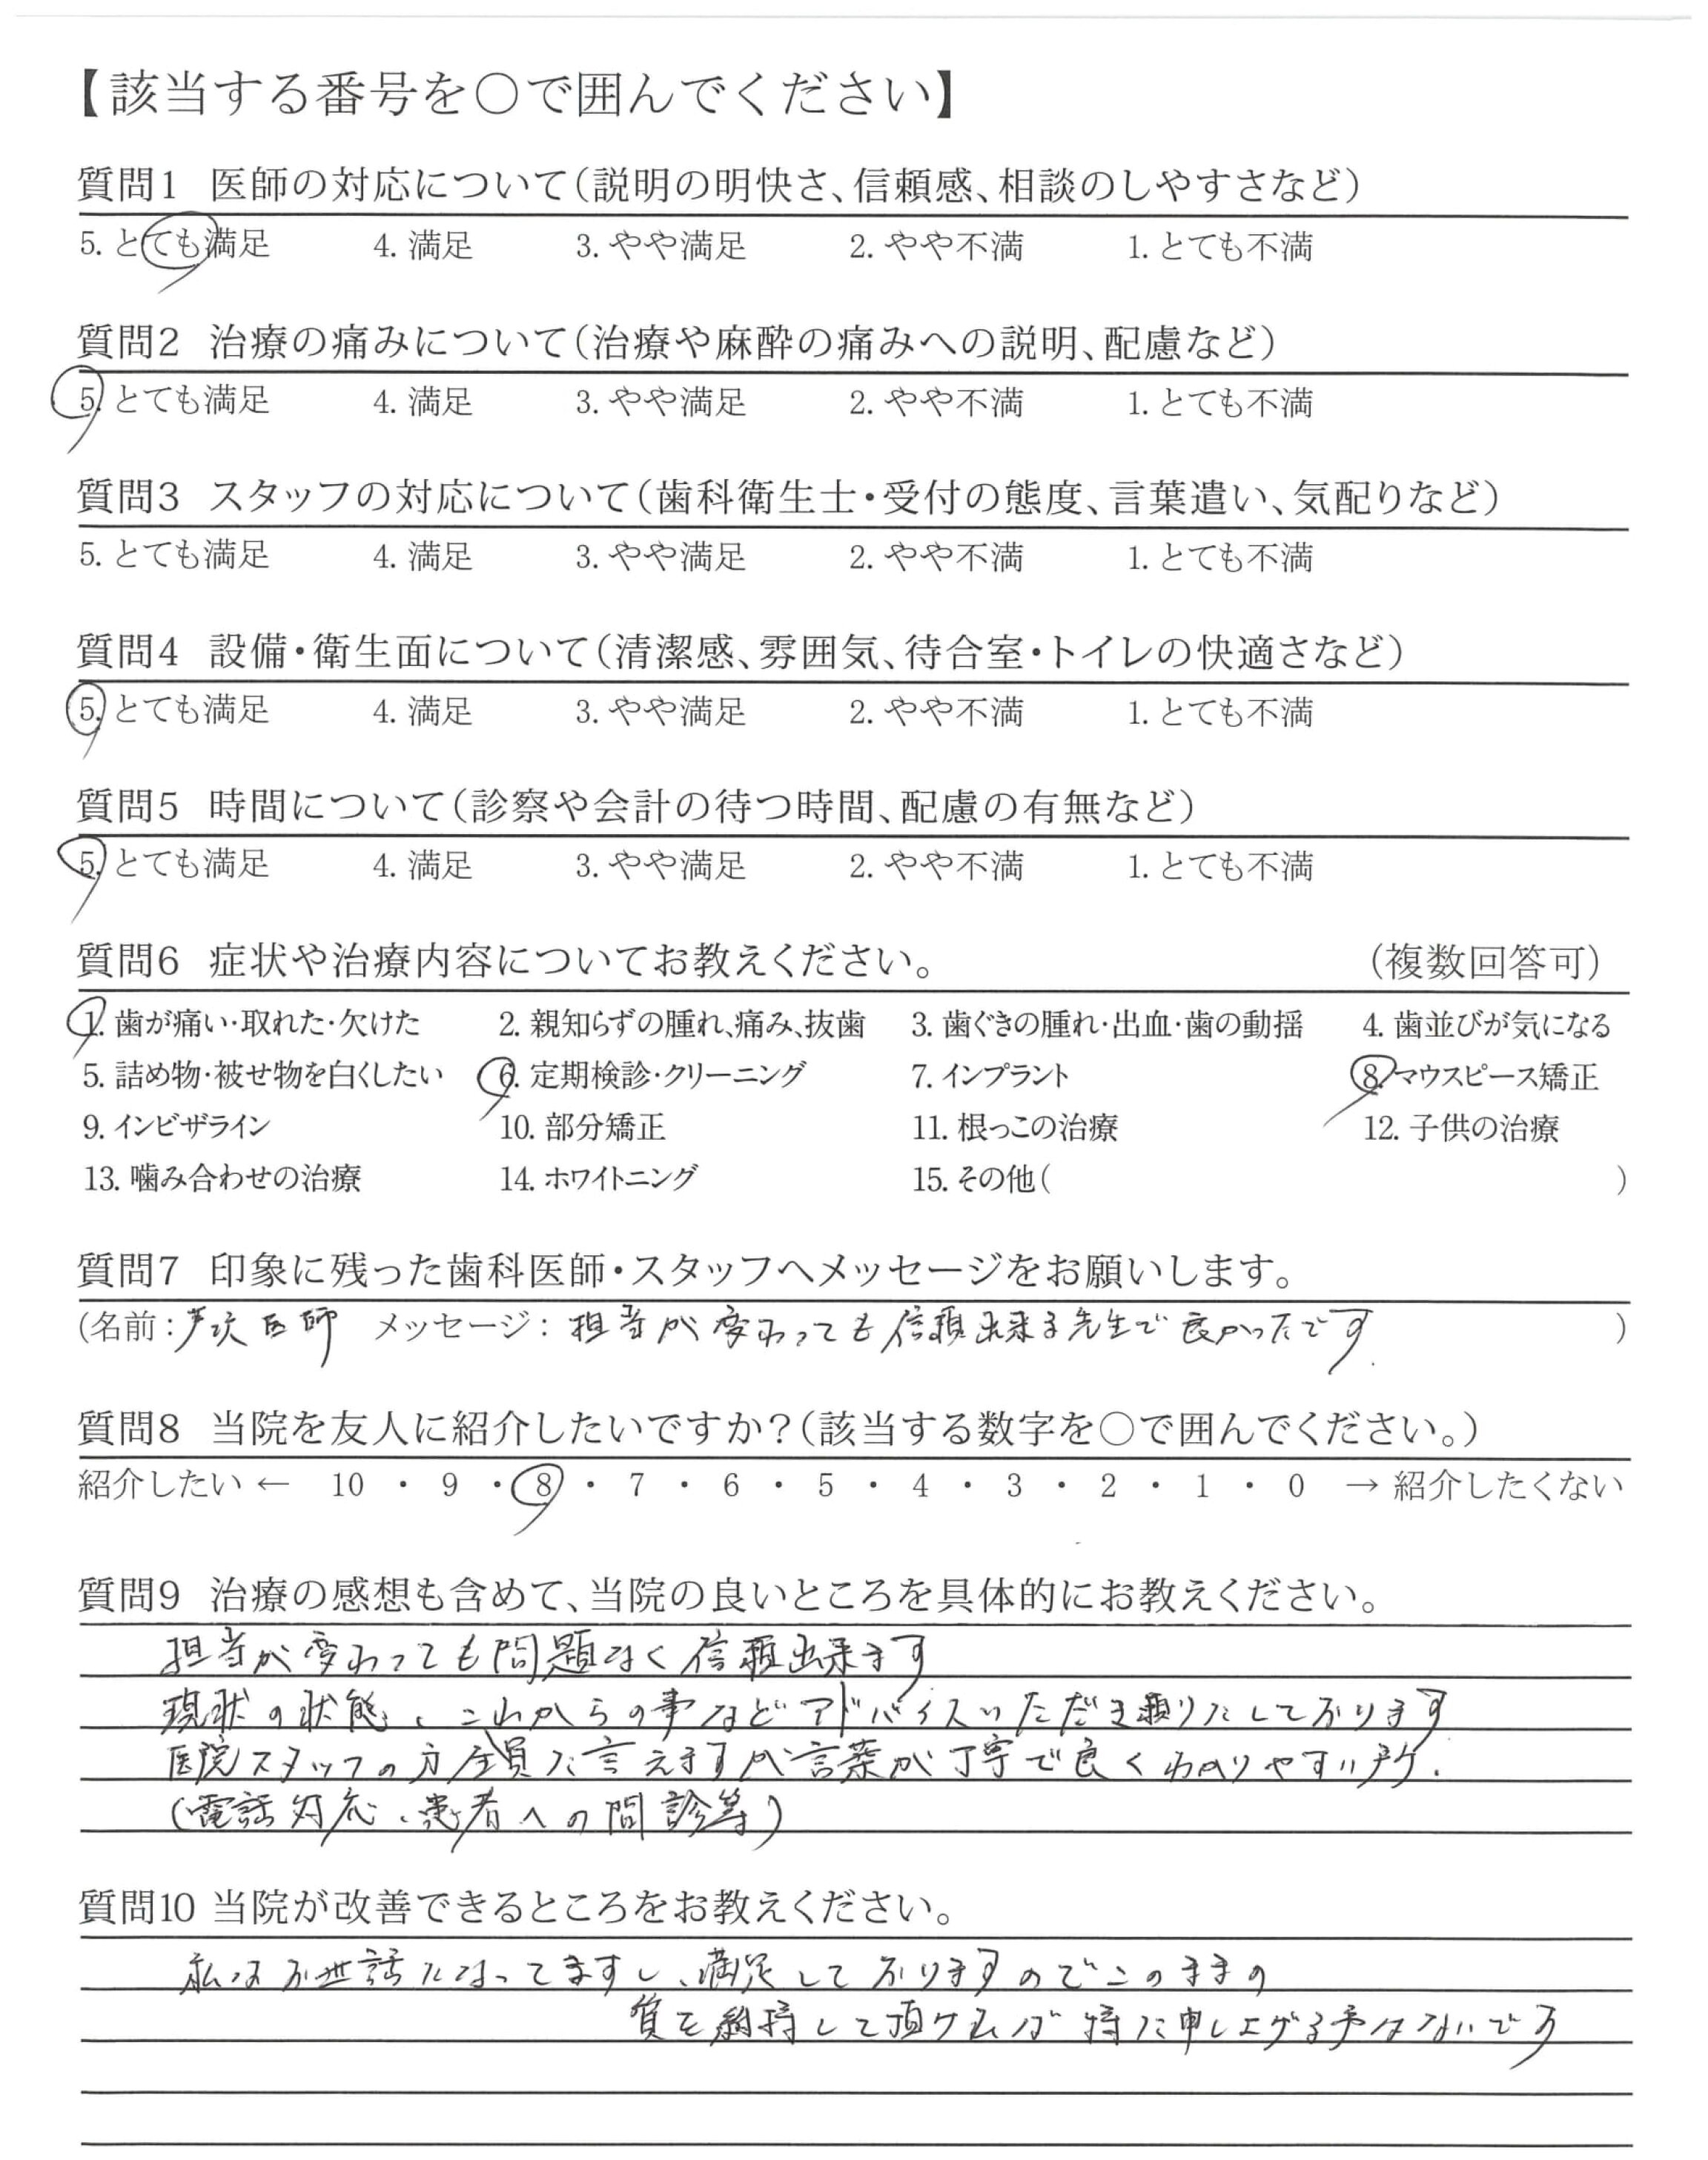 【該当する番号を○で囲んでください】
質問1 医師の対応について(説明の明快さ、信頼感、相談のしやすさなど)
5. とても満足 4. 満足 3. やや満足 2. やや不満 1. とても不満
質問2 治療の痛みについて(治療や麻酔の痛みへの説明、配慮など)
5. とても満足 4. 満足 3. やや満足 2. やや不満 1. とても不満
質問3 スタッフの対応について(歯科衛生士・受付の態度、言葉遣い、気配りなど)
5. とても満足 4. 満足 3. やや満足 2. やや不満 1. とても不満
質問4 設備・衛生面について(清潔感、雰囲気、待合室・トイレの快適さなど)
5. とても満足 4. 満足 3. やや満足 2. やや不満 1. とても不満
質問5 時間について(診察や会計の待つ時間、配慮の有無など)
5. とても満足 4. 満足 3. やや満足 2. やや不満 1. とても不満
質問6 症状や治療内容についてお教えください。 (複数回答可)
1. 歯が痛い・取れた・欠けた 2. 親知らずの腫れ、痛み、抜歯 3. 歯ぐきの腫れ・出血・歯の動揺 4. 歯並びが気になる
5. 詰め物・被せ物を白くしたい 6. 定期検診・クリーニング 7. インプラント 8. マウスピース矯正
9. インビザライン 10. 部分矯正 11. 根っこの治療 12. 子供の治療
13. 噛み合わせの治療 14. ホワイトニング 15. その他( )
質問7 印象に残った歯科医師・スタッフへメッセージをお願いします。
(名前: 医師 メッセージ: 担当が変わっても信頼出来る先生で良かったです )
質問8 当院を友人に紹介したいですか?(該当する数字を○で囲んでください。)
紹介したい ← 10 ・ 9 ・ 8 ・ 7 ・ 6 ・ 5 ・ 4 ・ 3 ・ 2 ・ 1 ・ 0 → 紹介したくない
質問9 治療の感想も含めて、当院の良いところを具体的にお教えください。
担当が変わっても問題なく信頼出来ます
現状の状態、これからの事などアドバイスいただき頼りにしております
医院スタッフの方全員に言えますが言葉が丁寧で良くわかりやすい所.
(電話対応、患者への問診等)
質問10 当院が改善できるところをお教えください。
私はお世話になってますし、満足しておりますのでこのままの
質を維持して頂ければ特に申し上げる事はないです